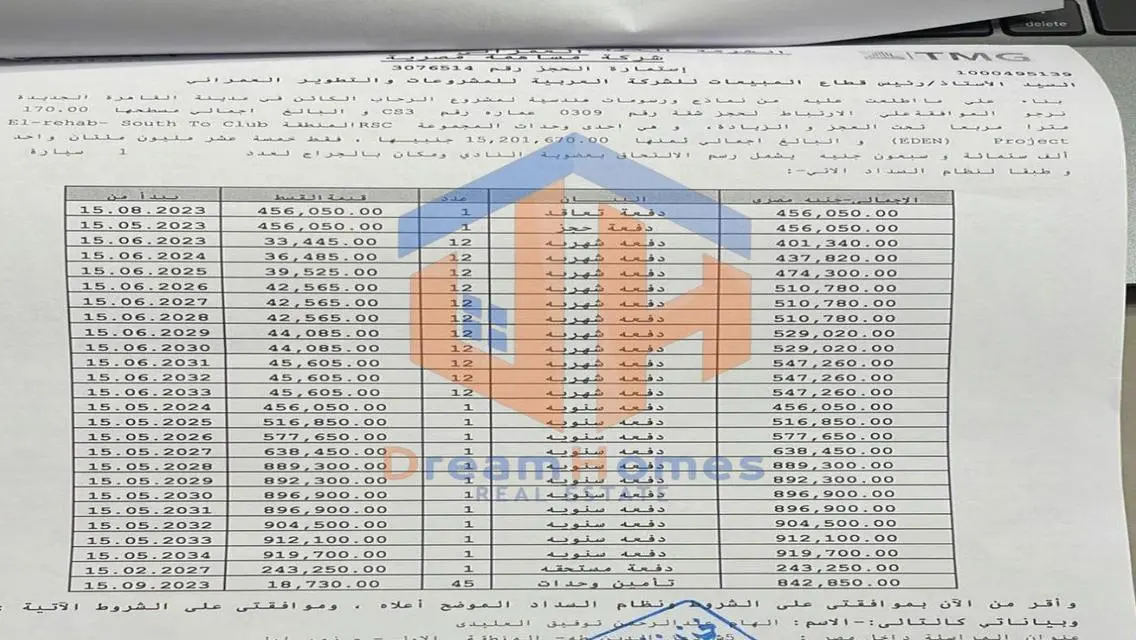 delete
شركة مساهمة مصرية
TMG
إستمارة الحجز رقم 3076514
1000495139
السيد الاستاذ/رئيس قطاع المبيعات للشركة العربية للمشروعات والتطوير العمراني
بناء على مااطلعت عليه من نماذج ورسومات هندسية لمشروع الرحاب الكائن في مدينة القاهرة الجديدة
نرجو الموافقة على الارتباط لحجز شقة رقم 0309 عماره رقم CS3 و البالغ اجمالي مسطحها 170.00
مترا مربعا تحت العجز و الزيادة، و هي احدى وحدات المجموعة RSC المنطقة El-rehab- South To Club
Project (EDEN) و البالغ اجمالي ثمنها 15,201,670.00 جنيها ، فقط خمسة عشر مليون مئتان واحد
ألف ستمائة و سبعون جنيه يشمل رسم الالتحاق بعضوية النادي ومكان بالجراج لعدد 1 سيارة
و طبقا لنظام السداد الاتي:-
الإجمالى-جنيه مصرى البيان عدد قيمة القسط يبدأ من
456,050.00 دفعة تعاقد 1 456,050.00 15.08.2023
456,050.00 دفعة حجز 1 456,050.00 15.05.2023
401,340.00 دفعه شهريه 12 33,445.00 15.06.2023
437,820.00 دفعه شهريه 12 36,485.00 15.06.2024
474,300.00 دفعه شهريه 12 39,525.00 15.06.2025
510,780.00 دفعه شهريه 12 42,565.00 15.06.2026
510,780.00 دفعه شهريه 12 42,565.00 15.06.2027
510,780.00 دفعه شهريه 12 42,565.00 15.06.2028
529,020.00 دفعه شهريه 12 44,085.00 15.06.2029
529,020.00 دفعه شهريه 12 44,085.00 15.06.2030
547,260.00 دفعه شهريه 12 45,605.00 15.06.2031
547,260.00 دفعه شهريه 12 45,605.00 15.06.2032
547,260.00 دفعه شهريه 12 45,605.00 15.06.2033
456,050.00 دفعه سنويه 1 456,050.00 15.05.2024
516,850.00 دفعه سنويه 1 516,850.00 15.05.2025
577,650.00 دفعه سنويه 1 577,650.00 15.05.2026
638,450.00 دفعه سنويه 1 638,450.00 15.05.2027
889,300.00 دفعه سنويه 1 889,300.00 15.05.2028
892,300.00 دفعه سنويه 1 892,300.00 15.05.2029
896,900.00 دفعه سنويه 1 896,900.00 15.05.2030
896,900.00 دفعه سنويه 1 896,900.00 15.05.2031
904,500.00 دفعه سنويه 1 904,500.00 15.05.2032
912,100.00 دفعه سنويه 1 912,100.00 15.05.2033
919,700.00 دفعه سنويه 1 919,700.00 15.05.2034
243,250.00 دفعة مستحقه 1 243,250.00 15.02.2027
842,850.00 تأمين وحدات 45 18,730.00 15.09.2023
Dream Homes
REAL ESTATE
وأقر من الآن بموافقتى على الشروط ونظام السداد الموضح أعلاه ، وموافقتى على الشروط الآتية :
وبياناتي كالتالى:-الاسم: توفيق العليدى